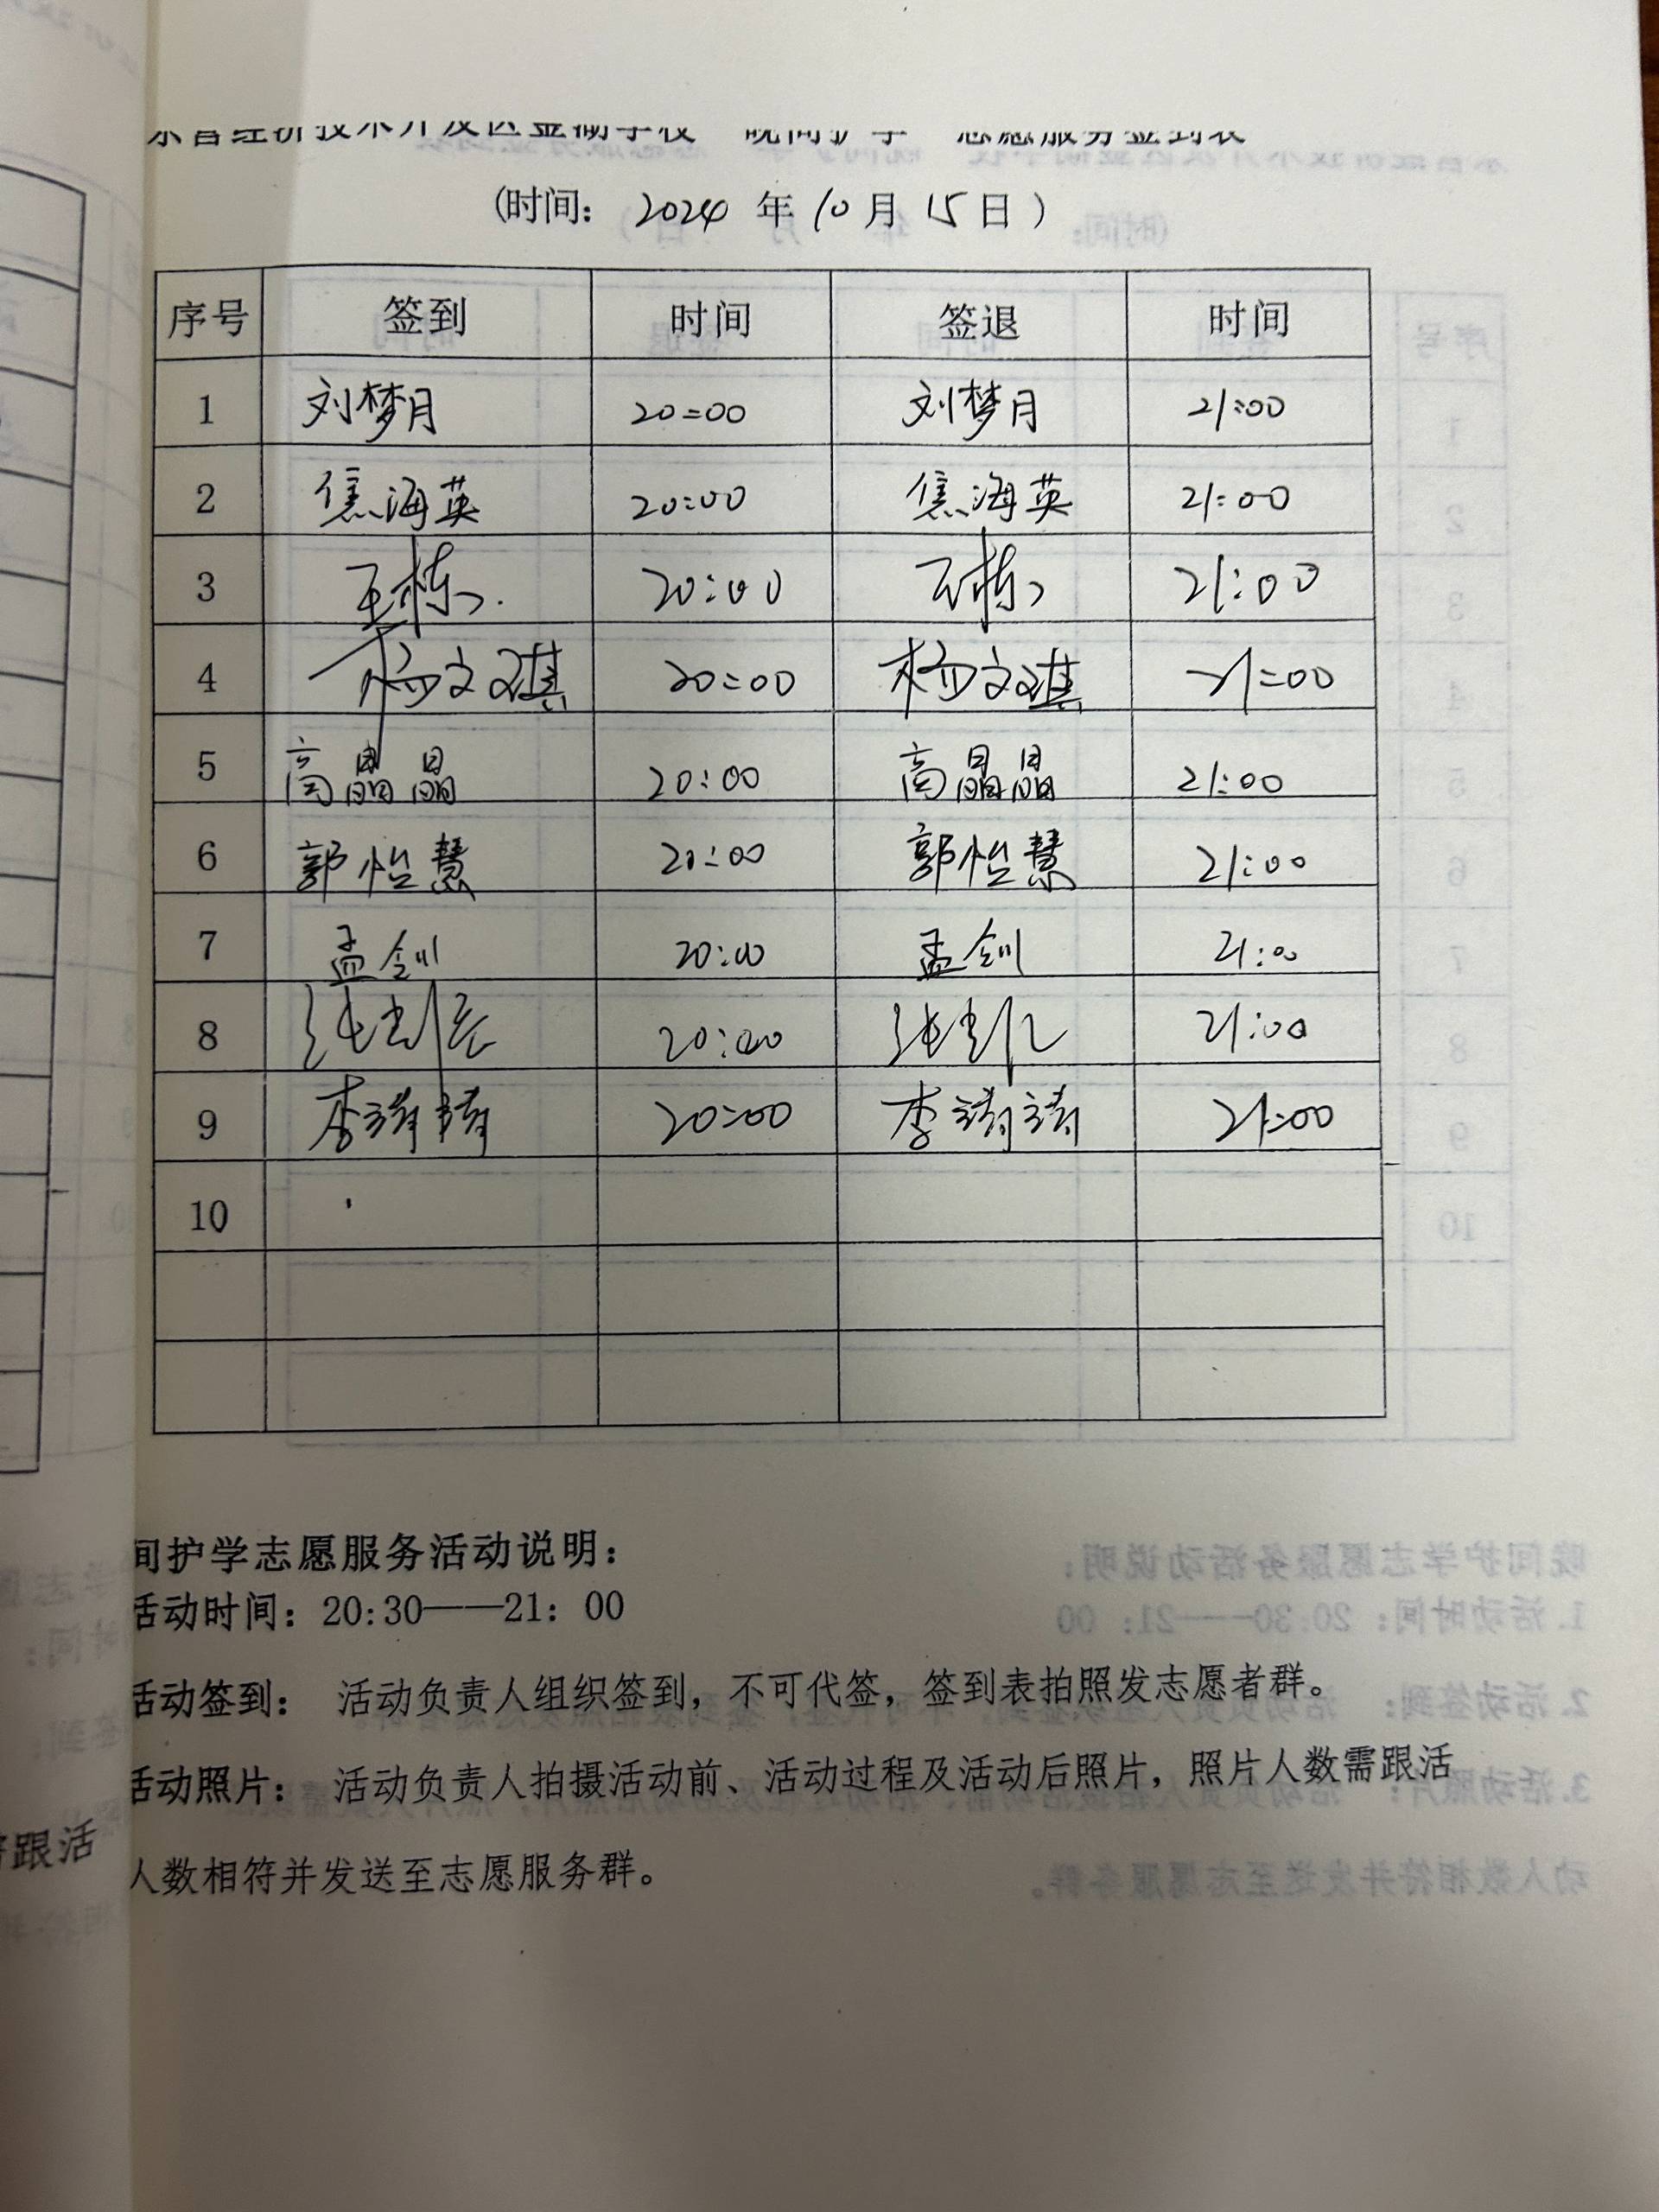 东营经济技术开发区金湖学校 晚间护学 志愿服务签到表
(时间: 2024 年 10 月 15 日)
序号 签到 时间 签退 时间
1 刘梦月 20:00 刘梦月 21:00
2 焦海英 20:00 焦海英 21:00
3 王栋 20:00 王栋 21:00
4 杨文琪 20:00 杨文琪 21:00
5 高晶晶 20:00 高晶晶 21:00
6 郭怡慧 20:00 郭怡慧 21:00
7 孟剑 20:00 孟剑 21:00
8 20:00 21:00
9 李靖靖 20:00 李靖靖 21:00
10
间护学志愿服务活动说明:
活动时间: 20:30——21: 00
活动签到: 活动负责人组织签到, 不可代签, 签到表拍照发志愿者群。
活动照片: 活动负责人拍摄活动前、活动过程及活动后照片, 照片人数需跟活
人数相符并发送至志愿服务群。
跟活